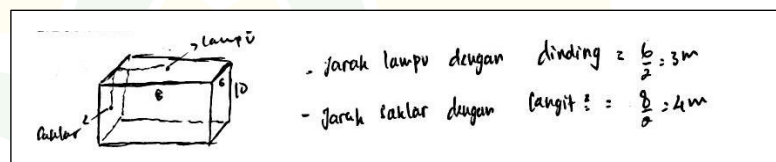 lampu
8
6
10
Saklar
- Jarak lampu dengan dinding = 6/2 = 3m
- Jarak Saklar dengan langit² = 8/2 = 4m